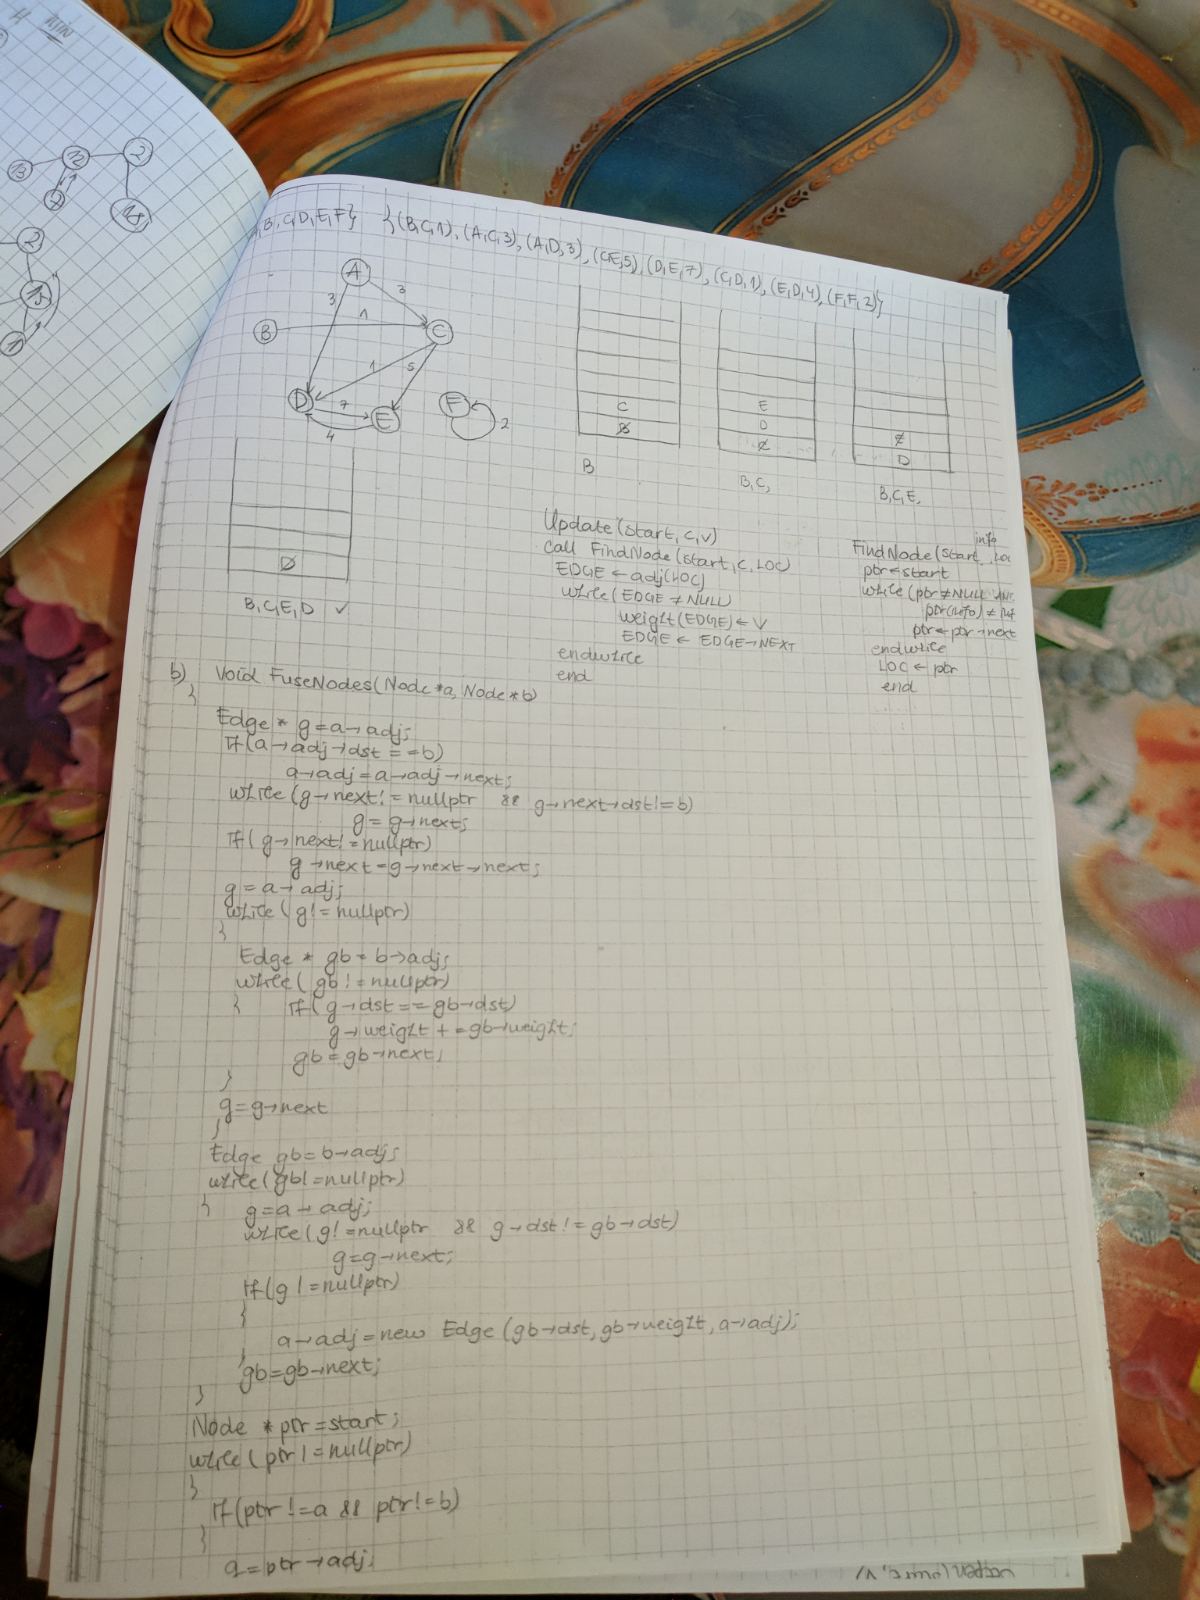 H MIN
13
12
2
7
18
2
15
11
,B,C,D,E,F} {(B,C,1), (A,C,3), (A,D,3), (C,E,5), (D,E,7), (C,D,1), (E,D,4), (F,F,2)}
A
3
3
B
1
C
1
5
D
7
E
4
F
2
C
B
B
E
D
C
B,C,
E
D
B,C,E,
D
B,C,E,D ✓
Update(start, c, v)
call FindNode(start, c, LOC)
EDGE ← adj(LOC)
while(EDGE ≠ NULL)
weight(EDGE) ← V
EDGE ← EDGE→NEXT
endwhile
end
info
FindNode(start, , LOC
ptr ← start
while(ptr ≠ NULL AND
ptr(info) ≠ inf
ptr ← ptr → next
endwhile
LOC ← ptr
end
b) Void FuseNodes(Node *a, Node *b)
{
Edge * g = a → adj;
If(a → adj → dst == b)
a → adj = a → adj → next;
while (g → next != nullptr && g → next → dst != b)
g = g → next;
If( g → next != nullptr)
g → next = g → next → next;
g = a → adj;
while( g != nullptr)
{
Edge * gb = b → adj;
while( gb != nullptr)
{ If( g → dst == gb → dst)
g → weight += gb → weight;
gb = gb → next;
}
g = g → next
}
Edge gb = b → adj;
while(gb != nullptr)
{ g = a → adj;
while(g != nullptr && g → dst != gb → dst)
g = g → next;
If(g != nullptr)
{
a → adj = new Edge (gb → dst, gb → weight, a → adj);
}
gb = gb → next;
}
Node * ptr = start;
while (ptr != nullptr)
{
If(ptr != a && ptr != b)
{
g = ptr → adj;